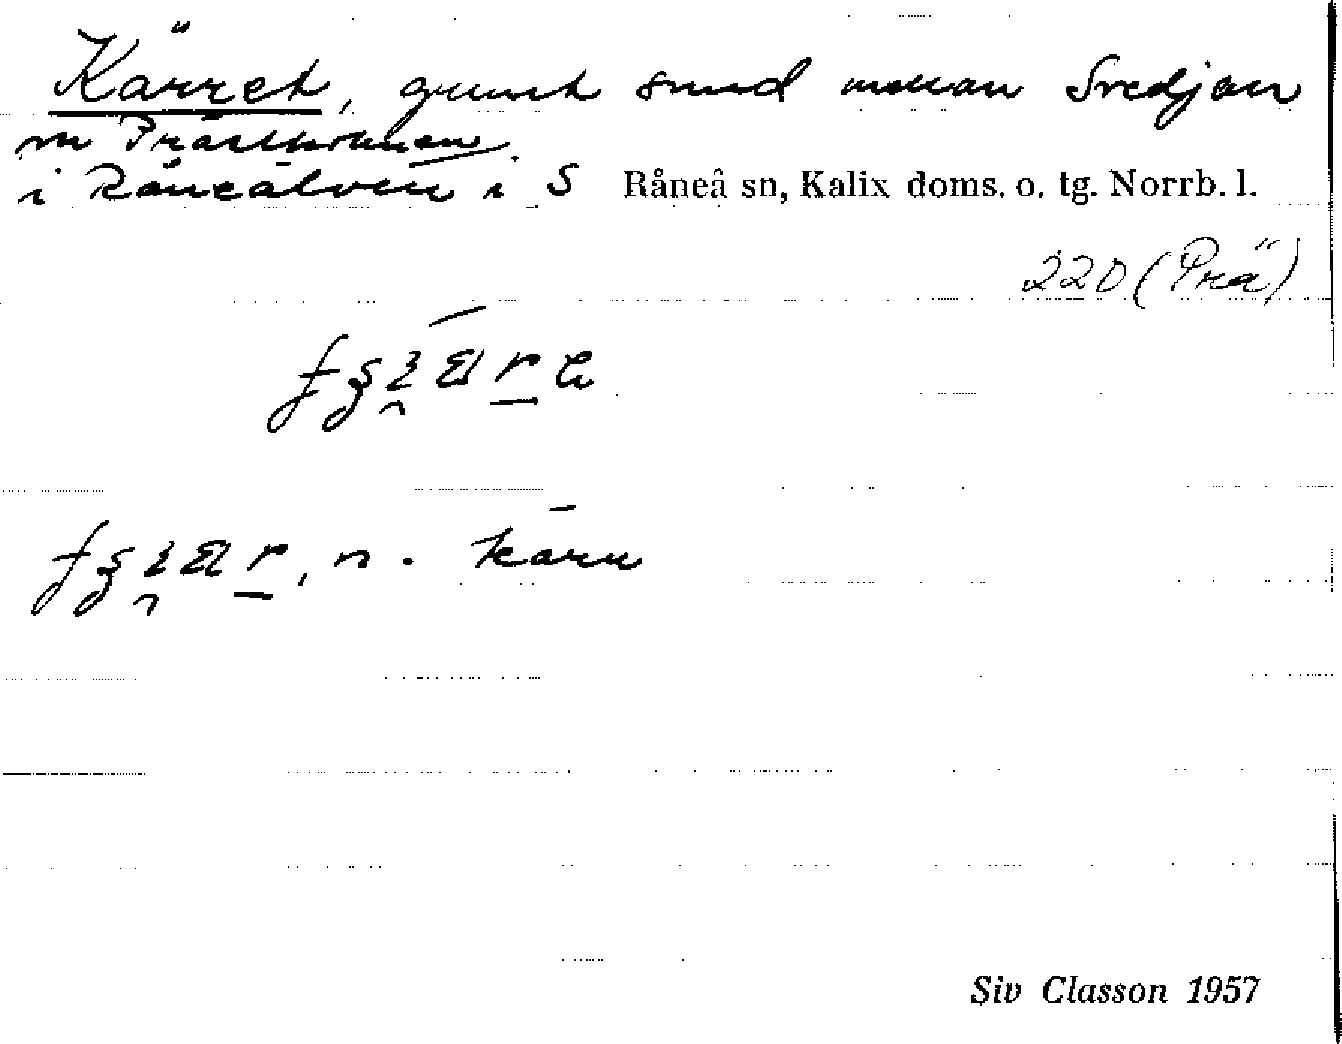 Kärret, grunt sund mellan Svedjan
o. Prästholmen
i Råneälven i S Råneå sn, Kalix doms. o. tg. Norrb. l.
220 (Prä)
n. kärr
Siv Classon 1957